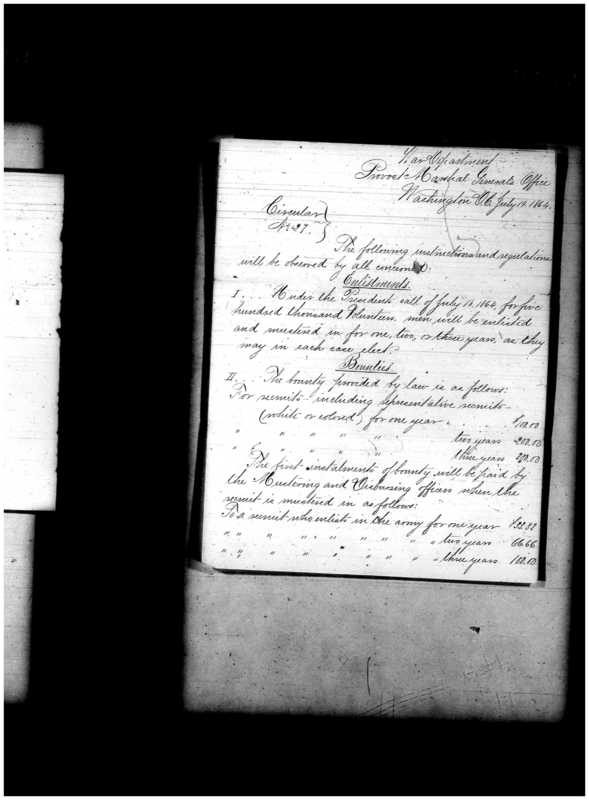 War Department
Provost Marshal Generals Office
Washington D.C. July 19. 1864.
Circular
No 27.
The following instructions and regulations
will be observed by all concerned.
Enlistments.
I. . . Under the Presidents call of July 18. 1864, for five
hundred thousand Volunteers, men will be enlisted
and mustered in for one, two, or three years, as they
may in each case elect.
Bounties.
II. . . The bounty provided by law is as follows:
For recruits including representative recruits
(white or colored) for one year . . . $100.00
" " " " " " two years 200.00
" " " " " three years 300.00
The first instalments of bounty will be paid by
the Mustering and Disbursing officers when the
recruit is mustered in as follows:
To a recruit who enlists in the army for one year $33.33
" " " " " " " " " " two years 66.66
" " " " " " " " " " three years 100.00